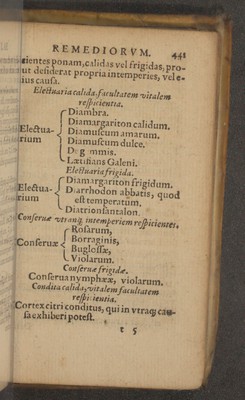 REMEDIORVM. 441
cientes ponam, calidas vel frigidas, pro-
ut desiderat propria intemperies, vel e-
ius causa.
Electuaria calida, facultatem vitalem
respicientia.
Diambra.
Diamargariton calidum.
Electua- Diamuscum amarum.
rium Diamuscum dulce.
De gemmis.
Lætitians Galeni.
Electuaria frigida.
Diamargariton frigidum.
Electua- Diarrhodon abbatis, quod
rium est temperatum.
Diatrionsantalon.
Conseruæ vtranq; intemperiem respicientes.
Rosarum,
Conseruæ Borraginis,
Buglossæ,
Violarum.
Conseruæ frigidæ.
Conserua nymphææ, violarum.
Condita calida, vitalem facultatem
respicientia.
Cortex citri conditus, qui in vtraq; cau-
sa exhiberi potest.
t 5